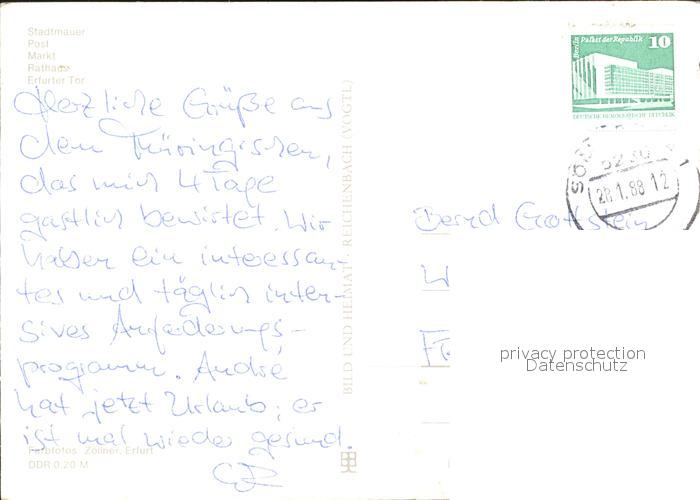 Stadtmauer
Post
Markt
Rathaus
Erfurter Tor
Herzliche Grüße aus
dem Thüringischen,
das mich 4 Tage
gastlich bewirtet. Wir
haben ein interessan-
tes und täglich inten-
sives Anforderungs-
programm. André
hat jetzt Urlaub; er
ist mal wieder gesund.
Farbfotos Zöllner, Erfurt
DDR 0,20 M
BILD UND HEIMAT REICHENBACH (VOGTL)
Berlin Palast der Republik 10
DEUTSCHE DEMOKRATISCHE REPUBLIK
28.1.88 12
Bernd Gottstein
W
privacy protection
Datenschutz